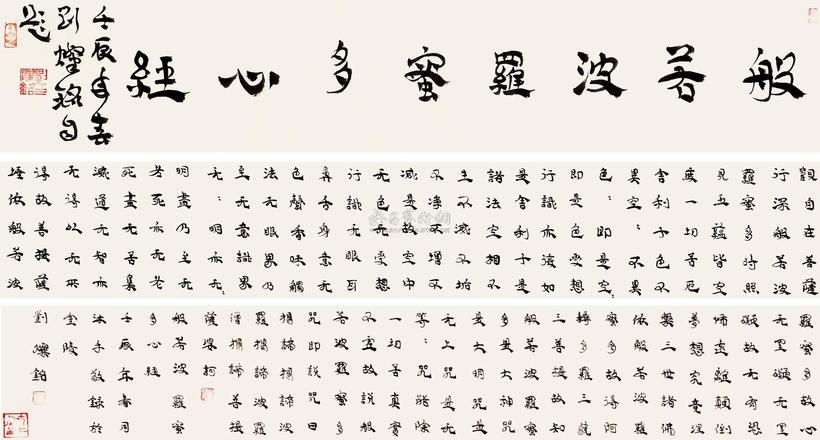 般若波羅蜜多心經
壬辰年春
劉燦銘自
題
觀自在菩薩
行深般若波
羅蜜多時照
見五蘊皆空
度一切苦厄
舍利子色不
異空〻不異
色〻即是空
即是色受想
行識亦復如
是舍利子是
諸法空相不
生不滅不垢
不淨不增不
減是故空中
无色无受想
行識无眼耳
鼻舌身意无
色聲香味觸
法无眼界乃
至无意識界
无〻明亦无〻
明盡乃至无
老死亦无老
死盡无苦集
滅道无智亦
无得以无所
得故菩提薩
埵依般若波
羅蜜多故心
无罣礙无罣
礙故无有恐
怖遠離顛倒
夢想究竟涅
槃三世諸佛
依般若波羅
蜜多故得阿
耨多羅三藐
三菩提故知
般若波羅蜜
多是大神咒
是大明咒是
无上咒是无
等〻咒能除
一切苦真實
不虛故說般
若波羅蜜多
咒即說咒曰
揭諦揭諦波
羅揭諦波羅
僧揭諦菩提
薩婆訶
般若波羅蜜
多心經
壬辰年春月
沐手敬錄於
金陵
劉燦銘